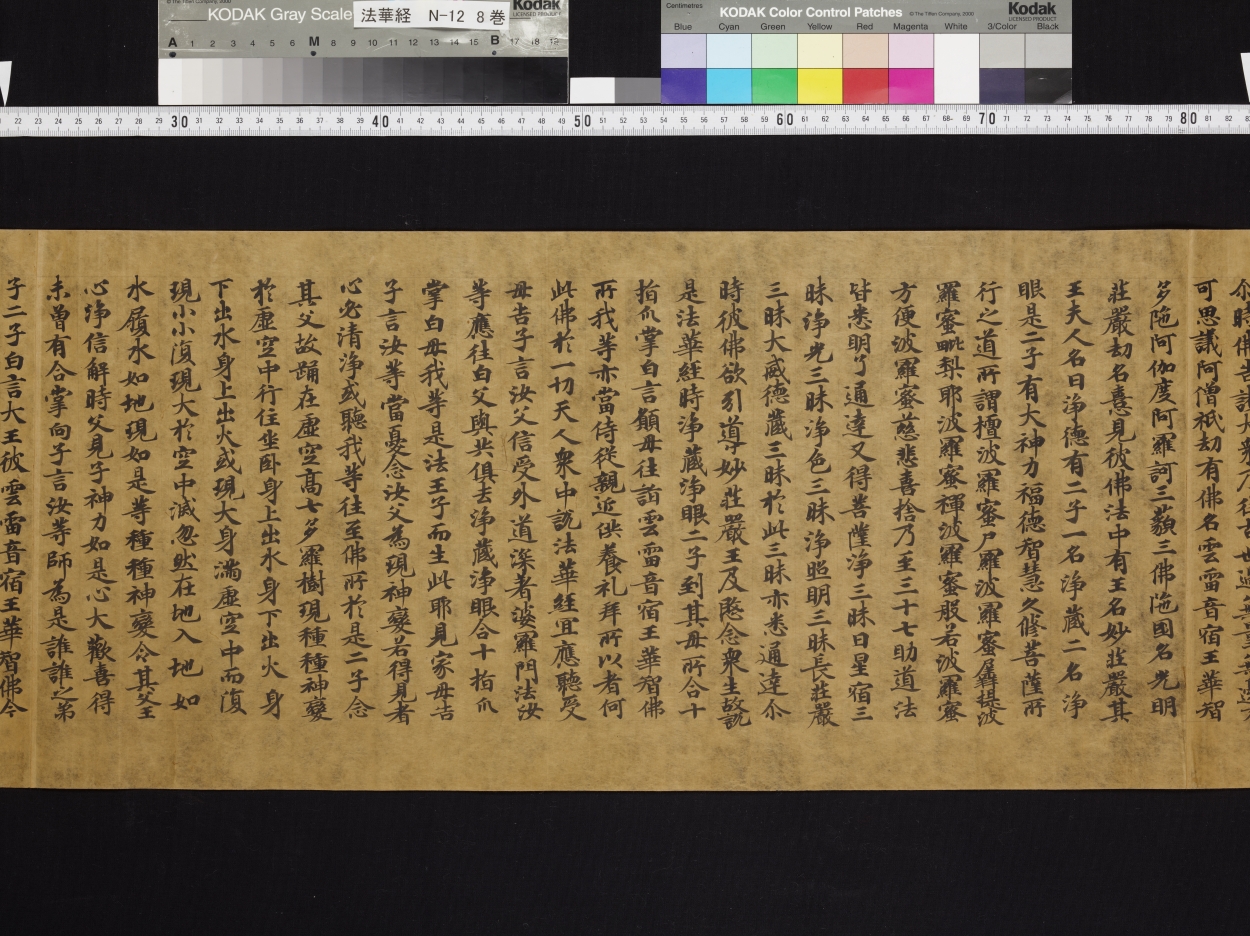 © The Tiffen Company, 2000
KODAK Gray Scale
Kodak
LICENSED PRODUCT
法華経 N-12 8巻
A 1 2 3 4 5 6 M 8 9 10 11 12 13 14 15 B 17 18 19
Centimetres
KODAK Color Control Patches
© The Tiffen Company, 2000
Kodak
LICENSED PRODUCT
Blue Cyan Green Yellow Red Magenta White 3/Color Black
22 23 24 25 26 27 28 29 30 31 32 33 34 35 36 37 38 39 40 41 42 43 44 45 46 47 48 49 50 51 52 53 54 55 56 57 58 59 60 61 62 63 64 65 66 67 68 69 70 71 72 73 74 75 76 77 78 79 80 81 82
尒時佛告諸大衆乃往古世過無量無邊不
可思議阿僧祇劫有佛名雲雷音宿王華智
多陁阿伽度阿羅訶三藐三佛陁國名光明
莊嚴劫名憙見彼佛法中有王名妙莊嚴其
王夫人名曰淨德有二子一名淨藏二名淨
眼是二子有大神力福德智慧久修菩薩所
行之道所謂檀波羅蜜尸羅波羅蜜羼提波
羅蜜毗梨耶波羅蜜禪波羅蜜般若波羅蜜
方便波羅蜜慈悲喜捨乃至三十七助道法
皆悉明了通達又得菩薩淨三昧日星宿三
昧淨光三昧淨色三昧淨照明三昧長莊嚴
三昧大威德藏三昧於此三昧亦悉通達尒
時彼佛欲引導妙莊嚴王及愍念衆生故說
是法華經時淨藏淨眼二子到其母所合十
指爪掌白言願母往詣雲雷音宿王華智佛
所我等亦當侍從親近供養礼拜所以者何
此佛於一切天人衆中說法華經宜應聽受
母告子言汝父信受外道深著婆羅門法汝
等應往白父與共俱去淨藏淨眼合十指爪
掌白母我等是法王子而生此耶見家母告
子言汝等當憂念汝父為現神變若得見者
心必清淨或聽我等往至佛所於是二子念
其父故踊在虛空高七多羅樹現種種神變
於虛空中行住坐臥身上出水身下出火身
下出水身上出火或現大身滿虛空中而復
現小小復現大於空中滅忽然在地入地如
水履水如地現如是等種種神變令其父王
心淨信解時父見子神力如是心大歡喜得
未曾有合掌向子言汝等師為是誰誰之弟
子二子白言大王彼雲雷音宿王華智佛今